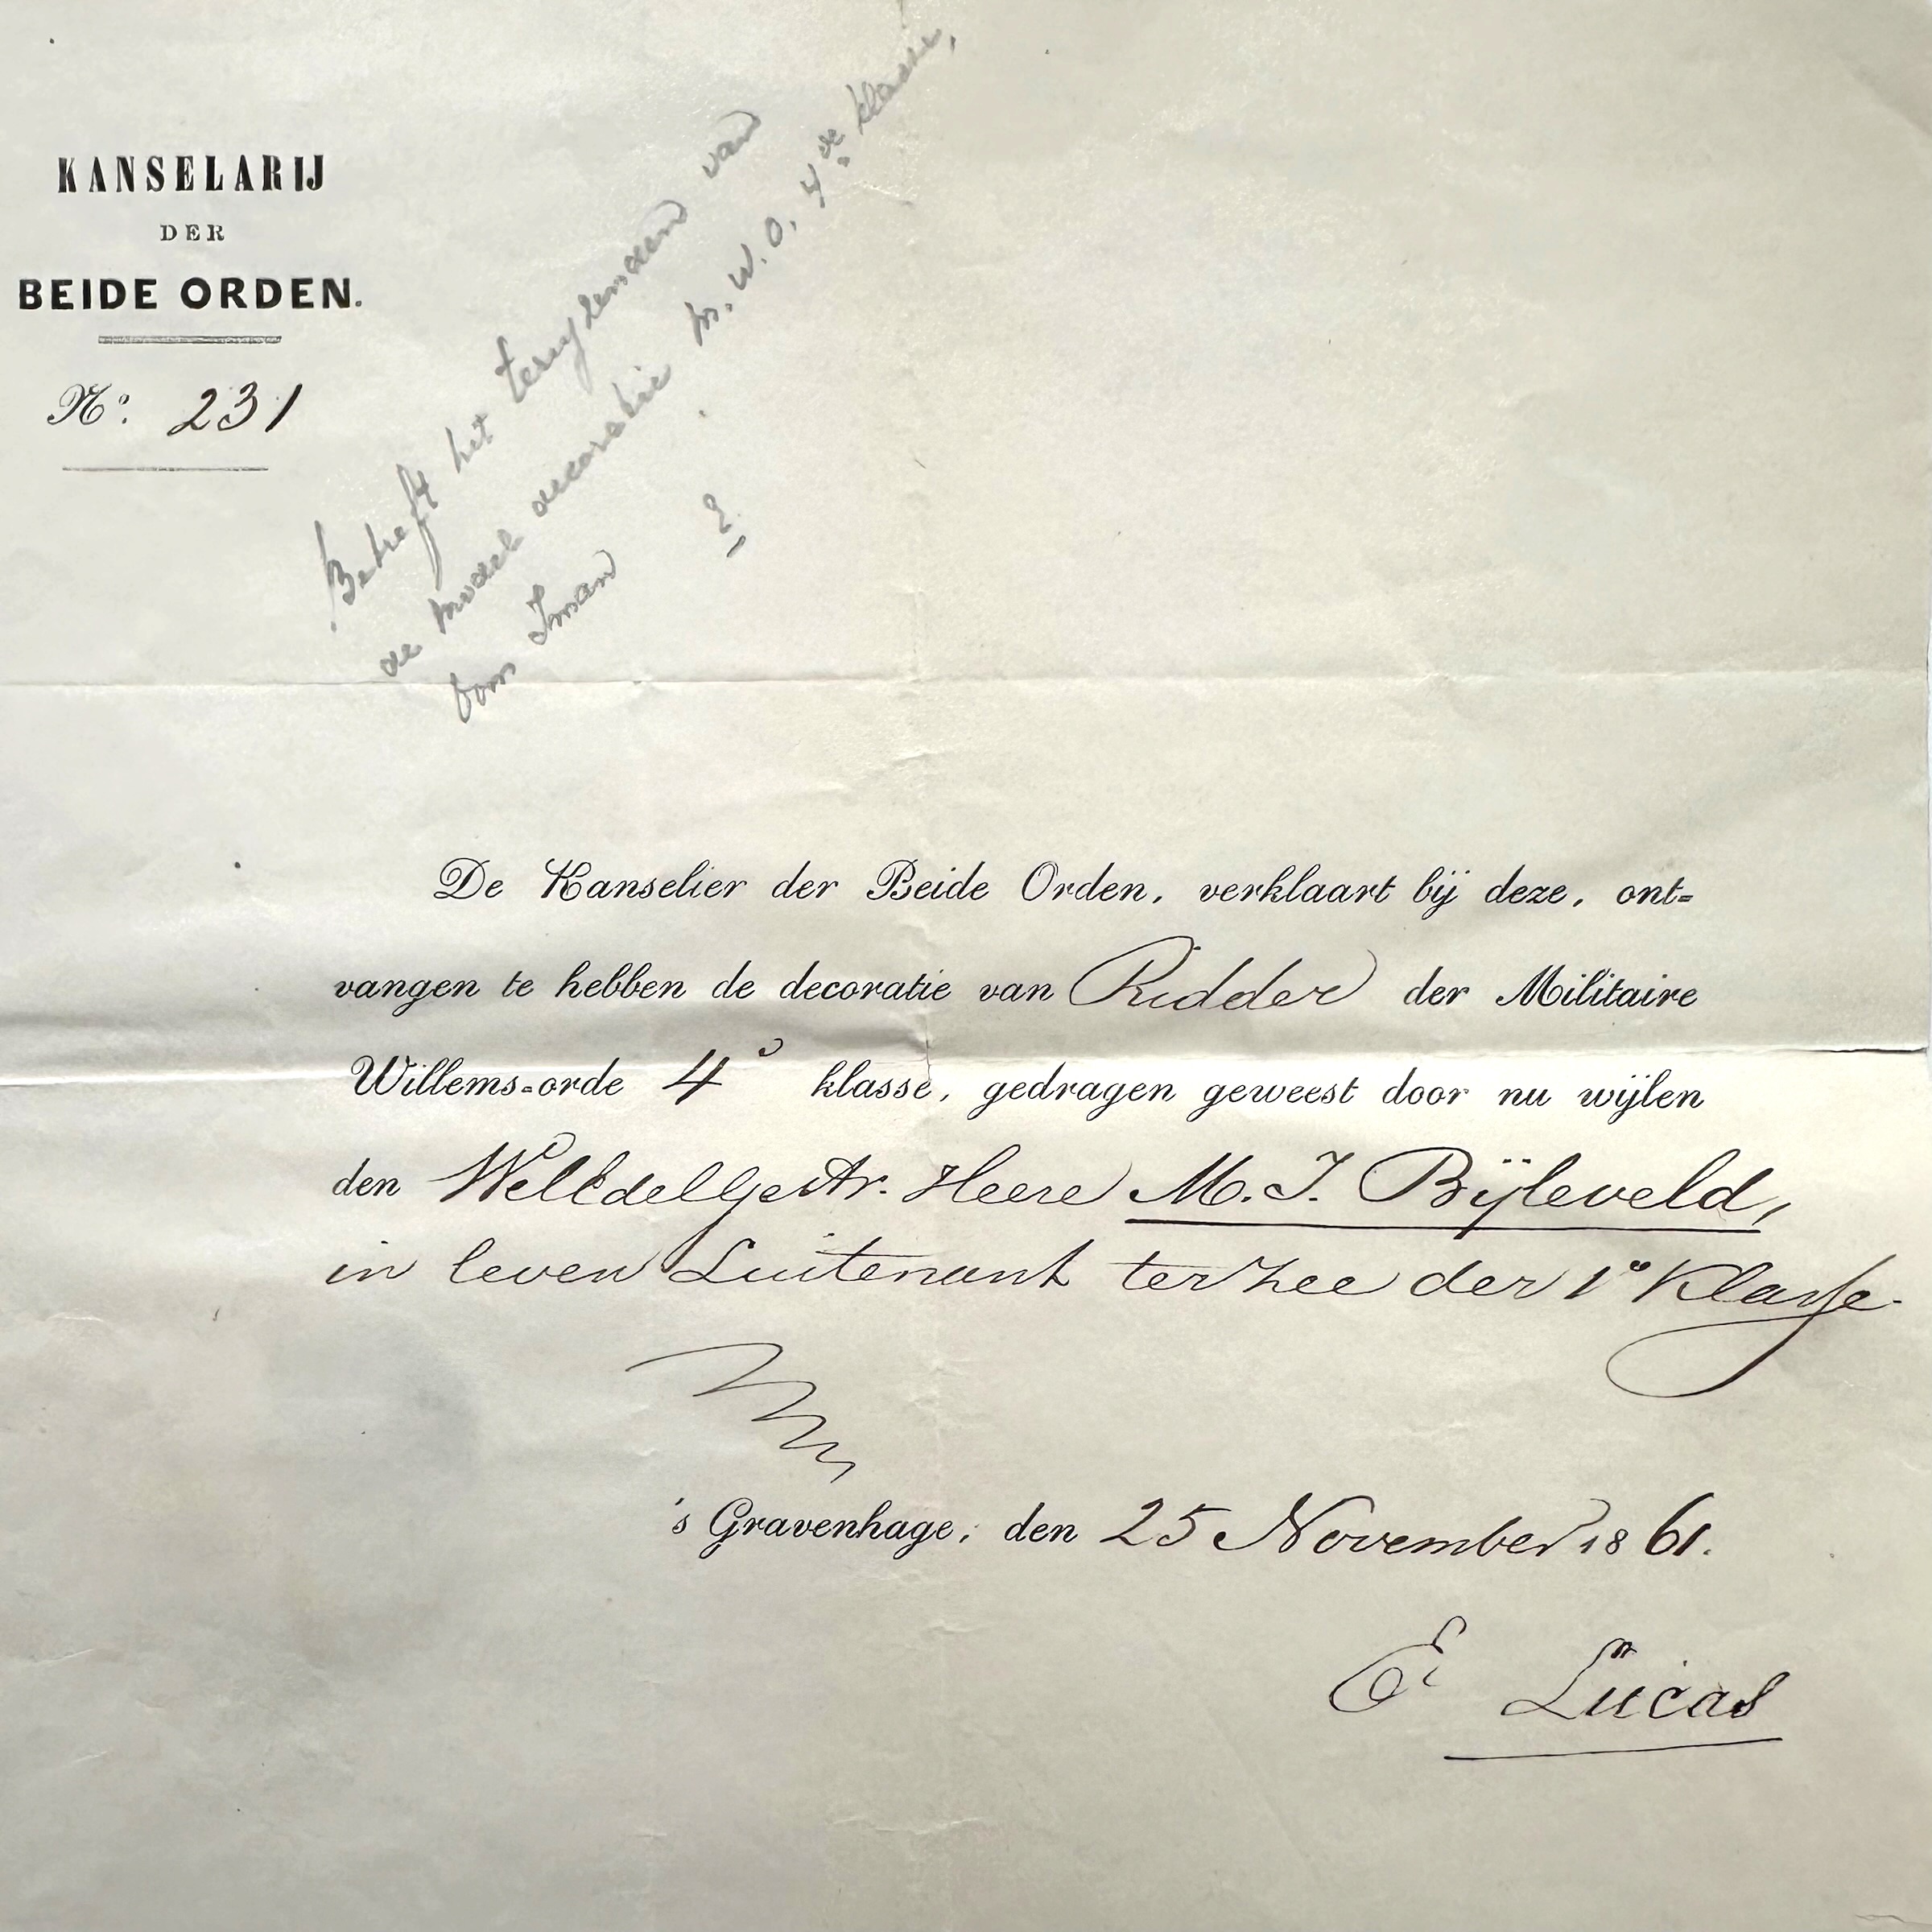 KANSELARIJ
DER
BEIDE ORDEN.
No. 231
Betreft het terugzenden van
de model decoratie M.W.O. 4de klasse,
Oom Iman ?
De Kanselier der Beide Orden, verklaart bij deze, ont=
vangen te hebben de decoratie van Ridder der Militaire
Willems=orde 4e klasse, gedragen geweest door nu wijlen
den WelEdelGestr. Heere M. I. Bijleveld,
in leven Luitenant ter Zee der 1e Klasse.
's Gravenhage, den 25 November 1861.
E Lucas